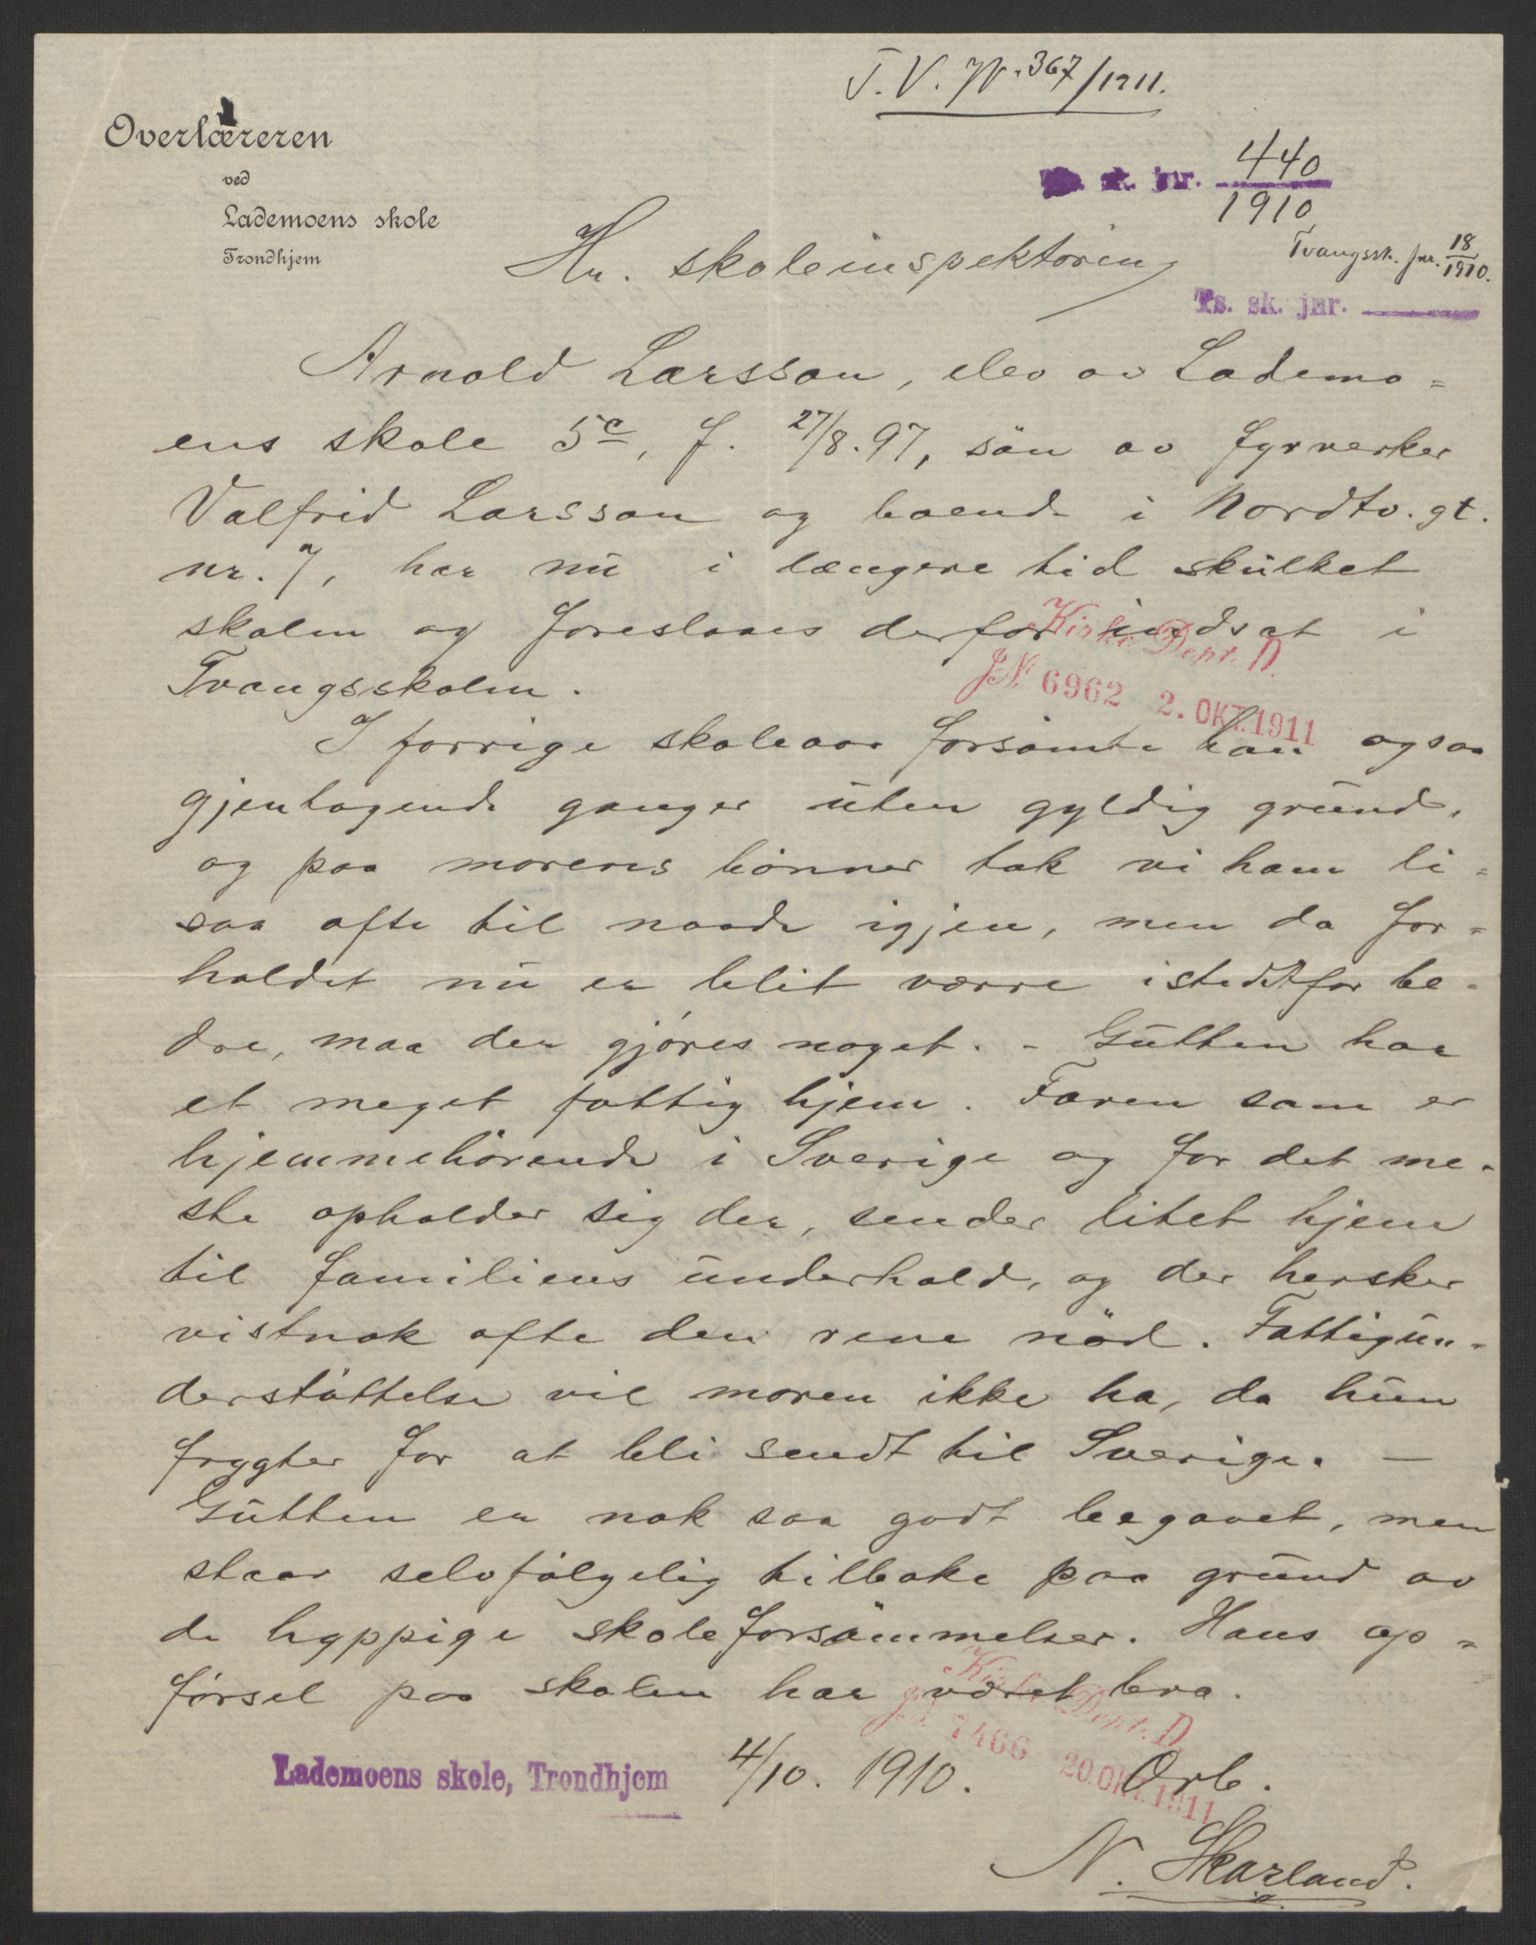 T. V. N. 367/1911.
Overlæreren
ved
Lademoens skole
Trondhjem
sk. jnr. 440
1910
Tvangssk. jnr. 18/1910.
Ts. sk. jnr.
Hr. skoleinspektøren,
Arnold Larsson, elev av Lademo=
ens skole 5c, f. 27/8.97, søn av fyrverker
Valfrid Larsson og boende i Nordtv. gt.
nr. 7, har nu i længere tid skulket
skolen og foreslaaes derfor indsat i
Tvangsskolen.
Kirke Dept. D.
JN 6962 2. OKT. 1911
I forrige skoleaar forsømte han ogsaa
gjentagende ganger uten gyldig grund,
og paa morens bønner tok vi ham li=
saa ofte til naade igjen, men da for=
holdet nu er blit værre istedetfor be=
dre, maa der gjøres noget. - Gutten har
et meget fattig hjem. Faren som er
hjemmehørende i Sverige og for det me=
ste opholder sig der, sender litet hjem
til familiens underhold, og der hersker
vistnok ofte den rene nød. Fattigun=
derstøttelse vil moren ikke ha, da hun
frygter for at bli sendt til Sverige. —
Gutten er nok saa godt begavet, men
staar selvfølgelig tilbake paa grund av
de hyppige skoleforsømmelser. Hans op=
førsel paa skolen har været bra.
Kirke Dept. D.
JN 7466 20. OKT. 1911
Lademoens skole, Trondhjem 4/10. 1910. Ørb.
N. Skarland.